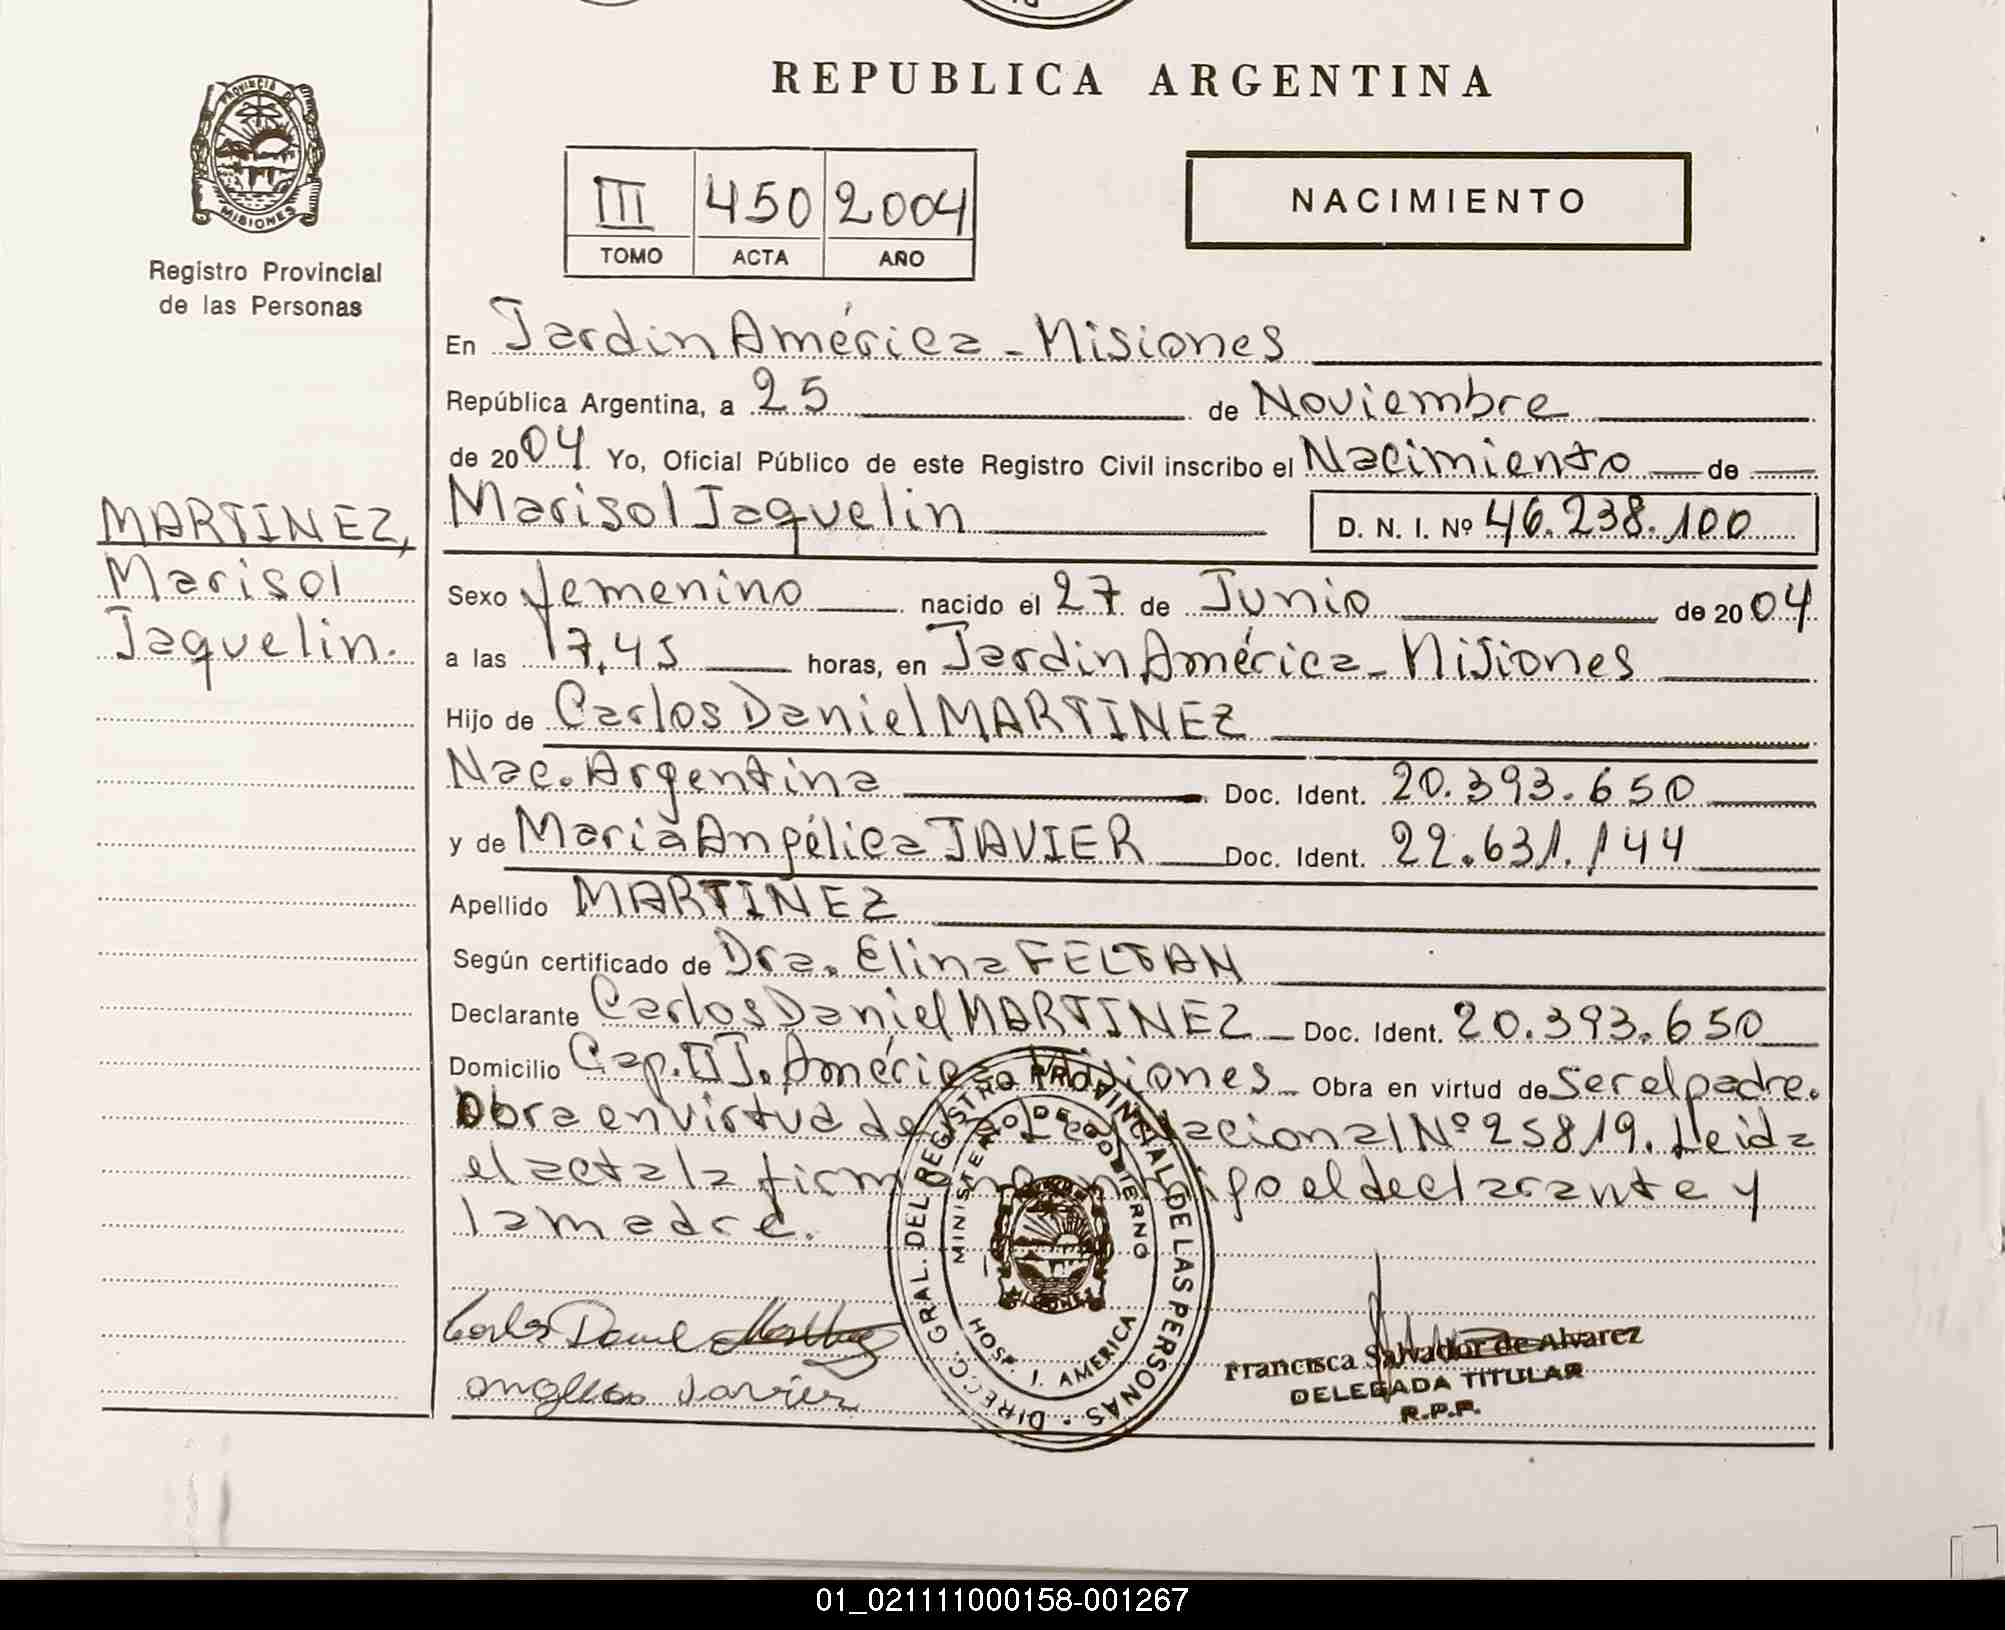 REPUBLICA ARGENTINA
PROVINCIA DE
MISIONES
Registro Provincial
de las Personas
III 450 2004
TOMO ACTA AÑO
NACIMIENTO
En Jardin América - Misiones
República Argentina, a 25 de Noviembre
de 2004 Yo, Oficial Público de este Registro Civil inscribo el Nacimiento de
MARTINEZ,
Marisol
Jaquelin.
Marisol Jaquelin D. N. I. Nº 46.238.100
Sexo femenino nacido el 27 de Junio de 2004
a las 17,45 horas, en Jardin América - Misiones
Hijo de Carlos Daniel MARTINEZ
Nac. Argentina Doc. Ident. 20.393.650
y de Maria Angélica JAVIER Doc. Ident. 22.631.144
Apellido MARTINEZ
Según certificado de Dra. Elina FELTAN
Declarante Carlos Daniel MARTINEZ Doc. Ident. 20.393.650
Domicilio Cap. III J. América Misiones Obra en virtud de Ser el padre.
Obra en virtud de Ley Nacional Nº 25819. Leida
el acta la firman el declarante y
la madre.
DIRECC. GRAL. DEL REGISTRO PROVINCIAL DE LAS PERSONAS
MINISTERIO DE GOBIERNO
MISIONES
HOSP. J. AMERICA
Carlos Daniel Martinez
Angelica Javier
Francisca Salvador de Alvarez
DELEGADA TITULAR
R.P.P.
01_021111000158-001267